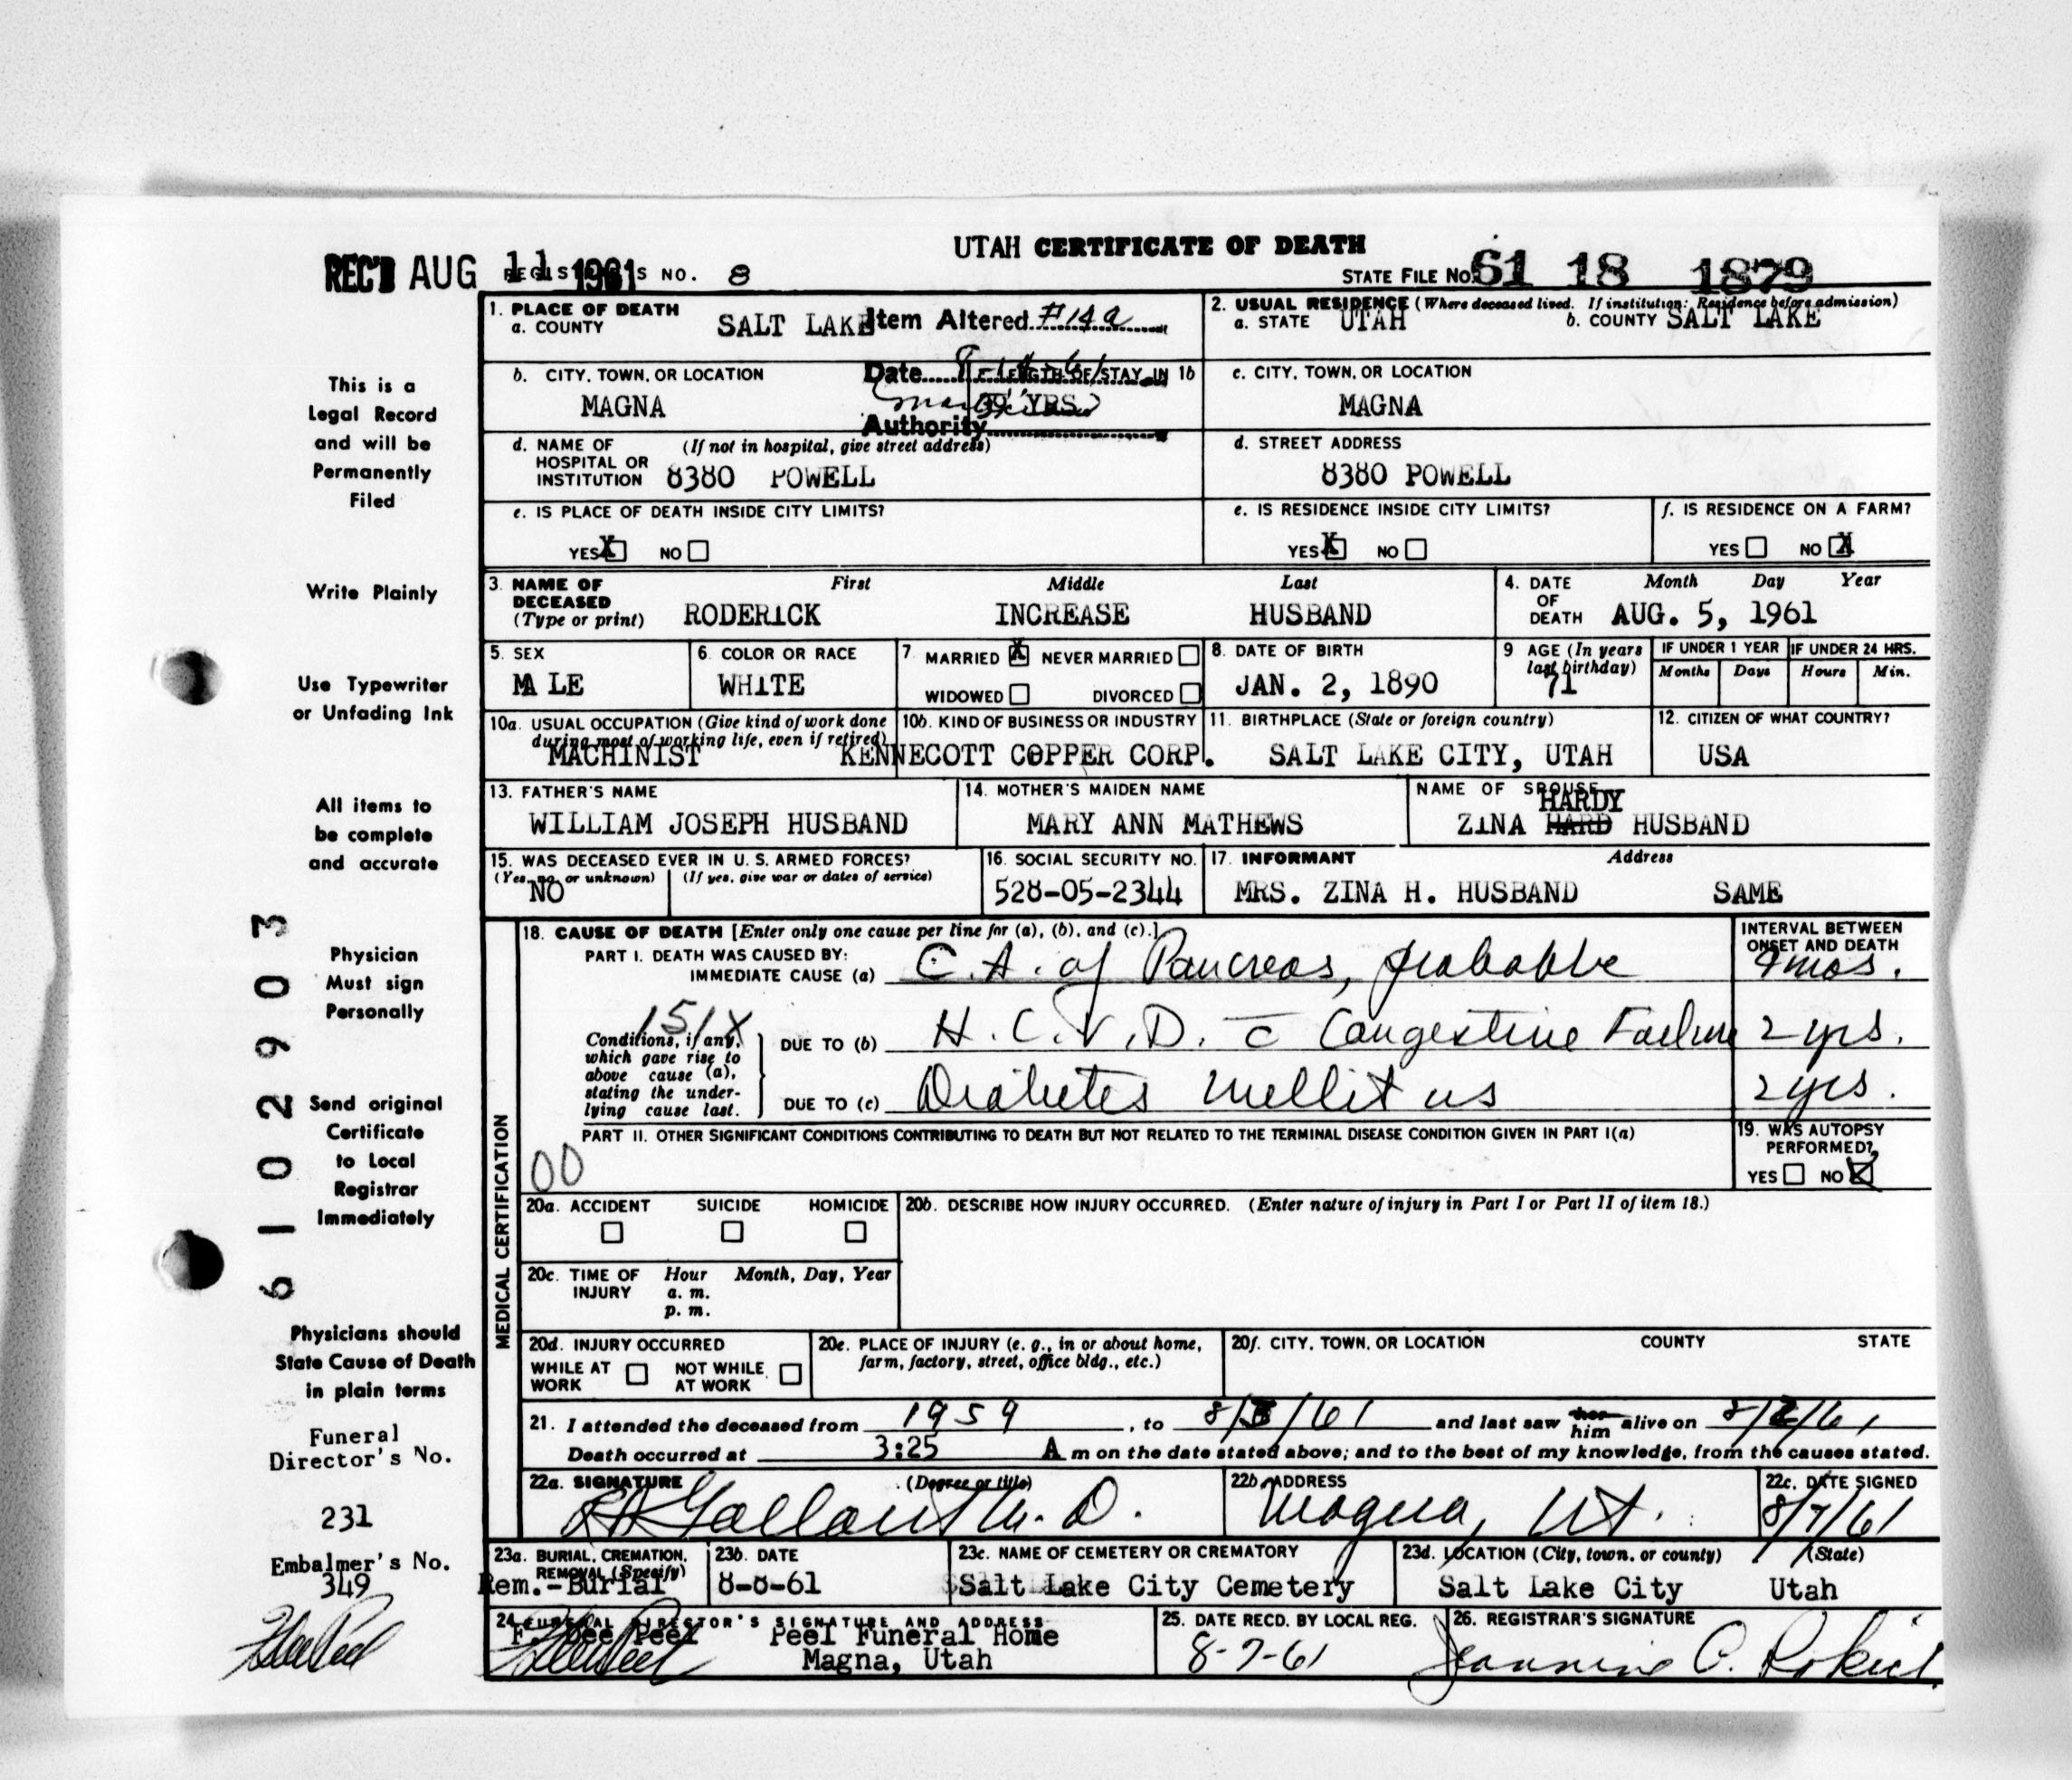 UTAH CERTIFICATE OF DEATH
REC'D AUG 11 1961
NO. 8
STATE FILE NO. 61 18 1879
1. PLACE OF DEATH
a. COUNTY SALT LAKE
Item Altered #14a
2. USUAL RESIDENCE (Where deceased lived. If institution: Residence before admission)
a. STATE UTAH b. COUNTY SALT LAKE
b. CITY, TOWN, OR LOCATION
MAGNA
Date
LENGTH OF STAY IN 1b
YRS
Authority
c. CITY, TOWN, OR LOCATION
MAGNA
d. NAME OF HOSPITAL OR INSTITUTION (If not in hospital, give street address)
8380 POWELL
d. STREET ADDRESS
8380 POWELL
e. IS PLACE OF DEATH INSIDE CITY LIMITS?
YES X NO
e. IS RESIDENCE INSIDE CITY LIMITS?
YES X NO
f. IS RESIDENCE ON A FARM?
YES NO X
3. NAME OF DECEASED (Type or print)
First Middle Last
RODERICK INCREASE HUSBAND
4. DATE OF DEATH
Month Day Year
AUG. 5, 1961
5. SEX
MALE
6. COLOR OR RACE
WHITE
7 MARRIED X NEVER MARRIED
WIDOWED DIVORCED
8. DATE OF BIRTH
JAN. 2, 1890
9 AGE (In years last birthday)
71
IF UNDER 1 YEAR
Months Days
IF UNDER 24 HRS.
Hours Min.
10a. USUAL OCCUPATION (Give kind of work done during most of working life, even if retired)
MACHINIST
10b. KIND OF BUSINESS OR INDUSTRY
KENNECOTT COPPER CORP.
11. BIRTHPLACE (State or foreign country)
SALT LAKE CITY, UTAH
12. CITIZEN OF WHAT COUNTRY?
USA
13. FATHER'S NAME
WILLIAM JOSEPH HUSBAND
14. MOTHER'S MAIDEN NAME
MARY ANN MATHEWS
NAME OF SPOUSE
HARDY
ZINA HARD HUSBAND
15. WAS DECEASED EVER IN U. S. ARMED FORCES?
(Yes, no, or unknown) (If yes, give war or dates of service)
NO
16. SOCIAL SECURITY NO.
528-05-2344
17. INFORMANT Address
MRS. ZINA H. HUSBAND SAME
MEDICAL CERTIFICATION
18. CAUSE OF DEATH [Enter only one cause per line for (a), (b), and (c).]
INTERVAL BETWEEN ONSET AND DEATH
PART I. DEATH WAS CAUSED BY:
IMMEDIATE CAUSE (a) C.A. of Pancreas, probable 9 mos.
151X
Conditions, if any, which gave rise to above cause (a), stating the underlying cause last.
DUE TO (b) H.C.V.D. c̄ Congestive Failure 2 yrs.
DUE TO (c) Diabetes mellitus 2 yrs.
PART II. OTHER SIGNIFICANT CONDITIONS CONTRIBUTING TO DEATH BUT NOT RELATED TO THE TERMINAL DISEASE CONDITION GIVEN IN PART I(a)
00
19. WAS AUTOPSY PERFORMED?
YES NO X
20a. ACCIDENT SUICIDE HOMICIDE
20b. DESCRIBE HOW INJURY OCCURRED. (Enter nature of injury in Part I or Part II of item 18.)
20c. TIME OF INJURY Hour Month, Day, Year
a. m.
p. m.
20d. INJURY OCCURRED
WHILE AT WORK NOT WHILE AT WORK
20e. PLACE OF INJURY (e. g., in or about home, farm, factory, street, office bldg., etc.)
20f. CITY, TOWN, OR LOCATION COUNTY STATE
21. I attended the deceased from 1959, to 8/ /61 and last saw her him alive on 8/2/61
Death occurred at 3:25 A m on the date stated above; and to the best of my knowledge, from the causes stated.
22a. SIGNATURE (Degree or title)
Gallant M.D.
22b. ADDRESS
Magna, Ut.
22c. DATE SIGNED
8/7/61
23a. BURIAL, CREMATION, REMOVAL (Specify)
Rem.-Burial
23b. DATE
8-8-61
23c. NAME OF CEMETERY OR CREMATORY
Salt Lake City Cemetery
23d. LOCATION (City, town, or county) (State)
Salt Lake City Utah
24. FUNERAL DIRECTOR'S SIGNATURE AND ADDRESS
F. Dee Peel Peel Funeral Home
Magna, Utah
25. DATE RECD. BY LOCAL REG.
8-7-61
26. REGISTRAR'S SIGNATURE
This is a
Legal Record
and will be
Permanently
Filed
Write Plainly
Use Typewriter
or Unfading Ink
All items to
be complete
and accurate
Physician
Must sign
Personally
Send original
Certificate
to Local
Registrar
Immediately
Physicians should
State Cause of Death
in plain terms
Funeral
Director's No.
231
Embalmer's No.
349
6102903